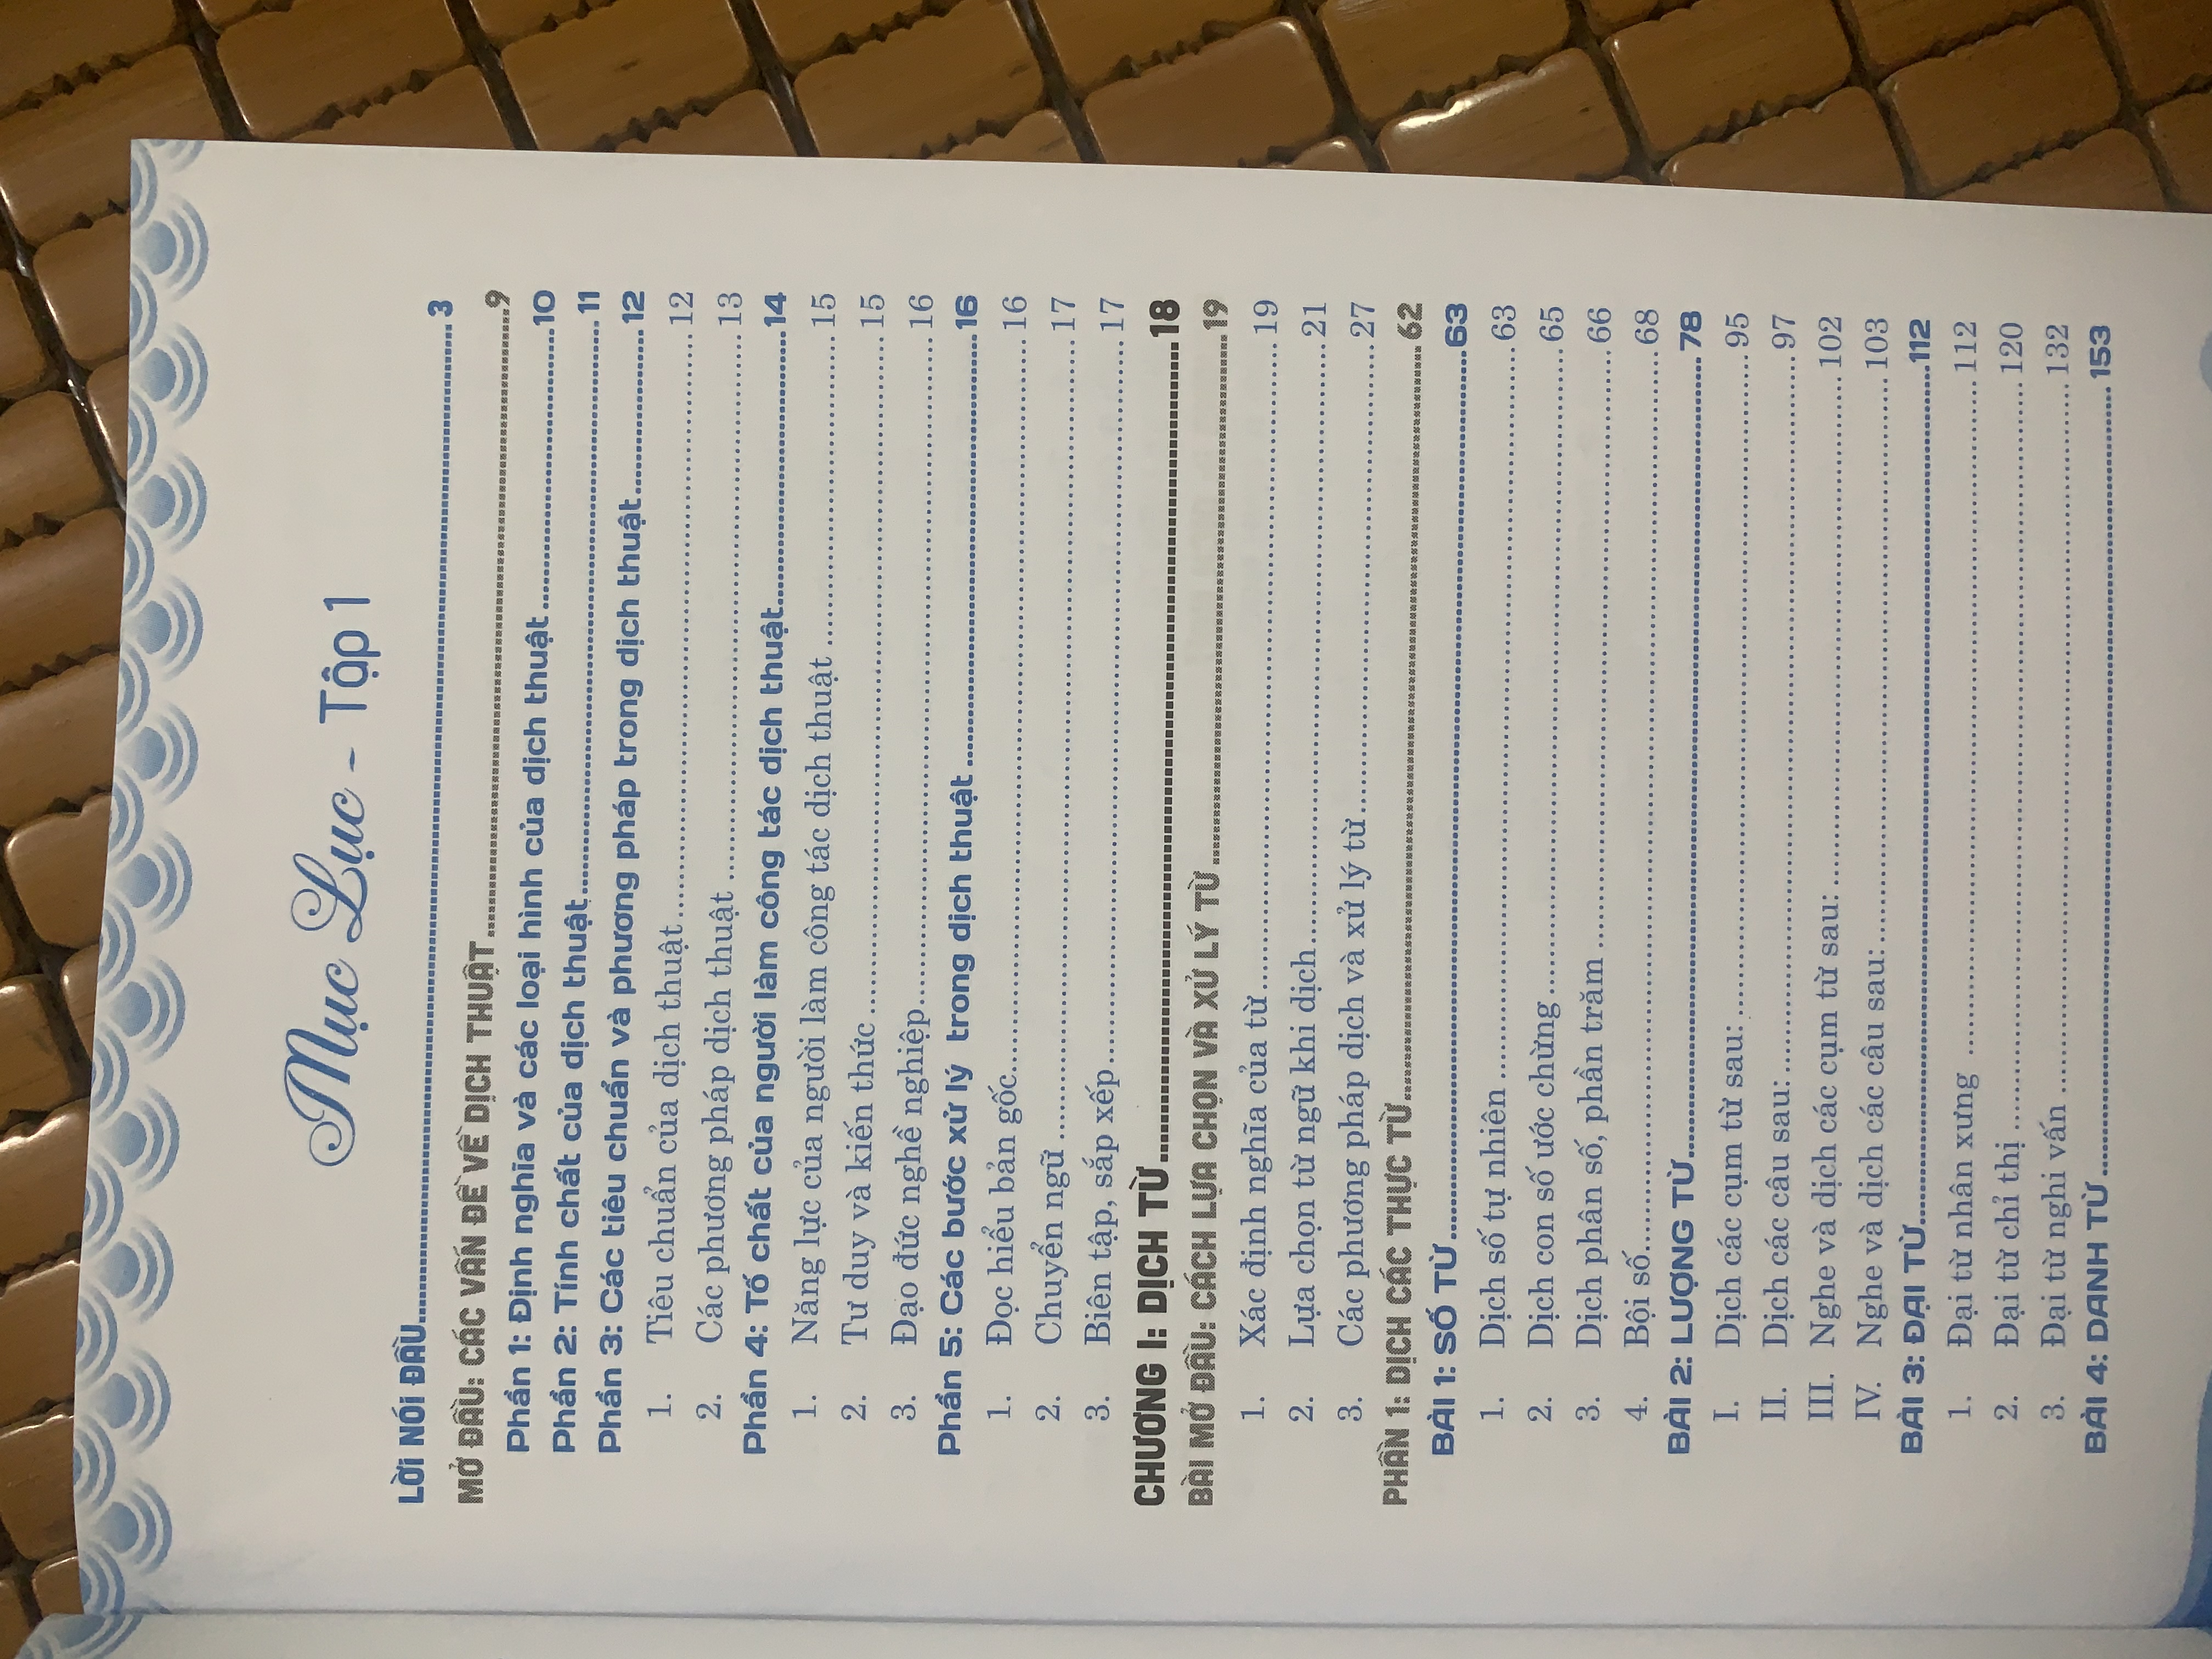 Mục Lục - Tập 1
LỜI NÓI ĐẦU........3
MỞ ĐẦU: CÁC VẤN ĐỀ VỀ DỊCH THUẬT........9
Phần 1: Định nghĩa và các loại hình của dịch thuật........10
Phần 2: Tính chất của dịch thuật........11
Phần 3: Các tiêu chuẩn và phương pháp trong dịch thuật........12
1. Tiêu chuẩn của dịch thuật........12
2. Các phương pháp dịch thuật........13
Phần 4: Tố chất của người làm công tác dịch thuật........14
1. Năng lực của người làm công tác dịch thuật........15
2. Tư duy và kiến thức........15
3. Đạo đức nghề nghiệp........16
Phần 5: Các bước xử lý trong dịch thuật........16
1. Đọc hiểu bản gốc........16
2. Chuyển ngữ........17
3. Biên tập, sắp xếp........17
CHƯƠNG I: DỊCH TỪ........18
BÀI MỞ ĐẦU: CÁCH LỰA CHỌN VÀ XỬ LÝ TỪ........19
1. Xác định nghĩa của từ........19
2. Lựa chọn từ ngữ khi dịch........21
3. Các phương pháp dịch và xử lý từ........27
PHẦN 1: DỊCH CÁC THỰC TỪ........62
BÀI 1: SỐ TỪ........63
1. Dịch số tự nhiên........63
2. Dịch con số ước chừng........65
3. Dịch phân số, phần trăm........66
4. Bội số........68
BÀI 2: LƯỢNG TỪ........78
I. Dịch các cụm từ sau:........95
II. Dịch các câu sau:........97
III. Nghe và dịch các cụm từ sau:........102
IV. Nghe và dịch các câu sau:........103
BÀI 3: ĐẠI TỪ........112
1. Đại từ nhân xưng........112
2. Đại từ chỉ thị........120
3. Đại từ nghi vấn........132
BÀI 4: DANH TỪ........153